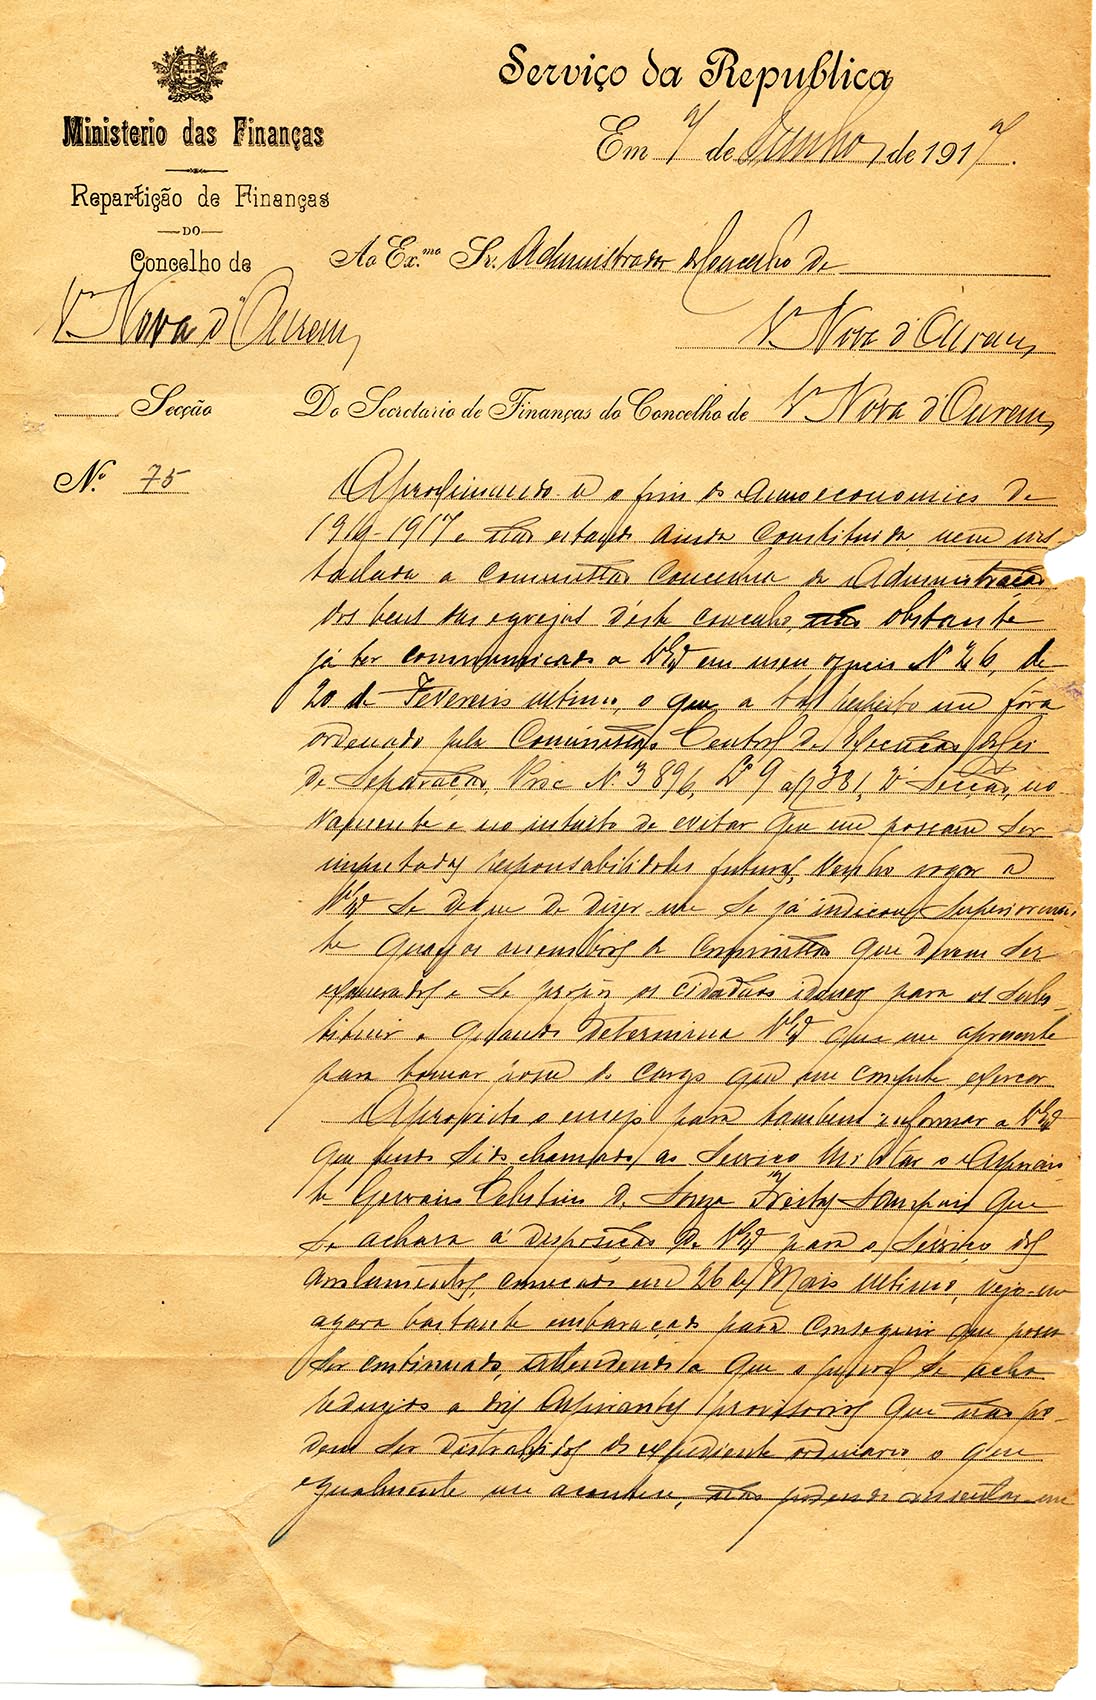 Serviço da Republica
Ministerio das Finanças
Em 7 de Junho de 1917.
Repartição de Finanças
DO
Concelho de
V.ª Nova d'Ourem
Ao Ex.mo Sr. Administrador do Concelho de
V.ª Nova d'Ourem
Secção
Do Secretario de Finanças do Concelho de V.ª Nova d'Ourem
N.º 75
Aproximando-se o fim do anno economico de
1916-1917 e não estando ainda constituida nem ins-
talada a commissão concelhia de Administração
dos bens das egrejas d'este concelho, não obstante
já ter communicado a V.Ex.ª em meu oficio N.º 26, de
20 de Fevereiro ultimo, o que a tal respeito me fôra
ordenado pela Commissão Central de Execução da Lei
de Separação, Proc. N.º 3896, L.º 9 a fl 381, 2.ª Secção, no-
vamente e no intuito de evitar que me possam ser
imputadas responsabilidades futuras, venho rogar a
V.Ex.ª se digne de dizer-me se já indicou superiormen-
te quaes os membros da commissão que devem ser
exonerados e se propôz os cidadãos idoneos para os subs-
tituir e quando determina V.Ex.ª que me apresente
para tomar posse do cargo que me compete exercer
Aproveito o ensejo para tambem informar a V.Ex.ª
que tendo sido chamado ao Serviço Militar o Aspiran-
te Gervasio Celestino de Souza Freitas Sampaio que
se achava á disposição de V.Ex.ª para o serviço dos
arrolamentos, em 26 de Maio ultimo, vejo-me
agora bastante embaraçado para conseguir que possa
ser continuado, attendendo a que o pessoal se acha
reduzido a dois Aspirantes provisorios que não po-
dem ser distrahidos do expediente ordinario, o que
egualmente me acontece, não podendo